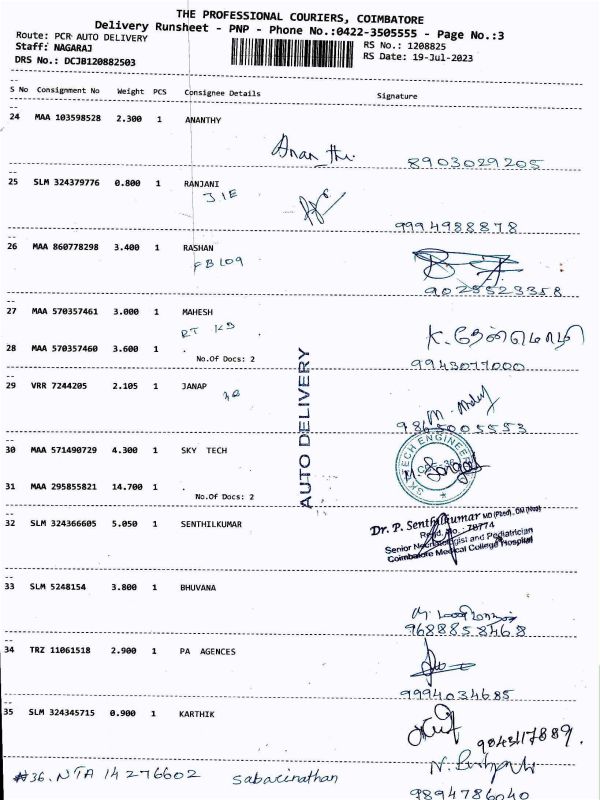 THE PROFESSIONAL COURIERS, COIMBATORE
Delivery Runsheet - PNP - Phone No.:0422-3505555 - Page No.:3
Route: PCR AUTO DELIVERY
RS No.: 1208825
Staff: NAGARAJ
RS Date: 19-Jul-2023
DRS No.: DCJB120882503
S No Consignment No Weight PCS Consignee Details Signature
24 MAA 103598528 2.300 1 ANANTHY
8903029205
25 SLM 324379776 0.800 1 RANJANI
JIE
9994988878
26 MAA 860778298 3.400 1 RASHAN
FBL09
9025523358
27 MAA 570357461 3.000 1 MAHESH
28 MAA 570357460 3.600 1 .
No.Of Docs: 2
9943077000
29 VRR 7244205 2.105 1 JANAP
9865005553
AUTO DELIVERY
30 MAA 571490729 4.300 1 SKY TECH
SKY TECH ENGINEER
31 MAA 295855821 14.700 1 .
No.Of Docs: 2
32 SLM 324366605 5.050 1 SENTHILKUMAR
Dr. P. Senthilkumar MD (Paed)., DM (Neo)
Regd. No. : 78774
Senior Neonatologist and Pediatrician
Coimbatore Medical College Hospital
33 SLM 5248154 3.800 1 BHUVANA
9688858468
34 TRZ 11061518 2.900 1 PA AGENCES
9994034685
35 SLM 324345715 0.900 1 KARTHIK
9043117889.
#36. NTA 14276602 sabarinathan
9894786040